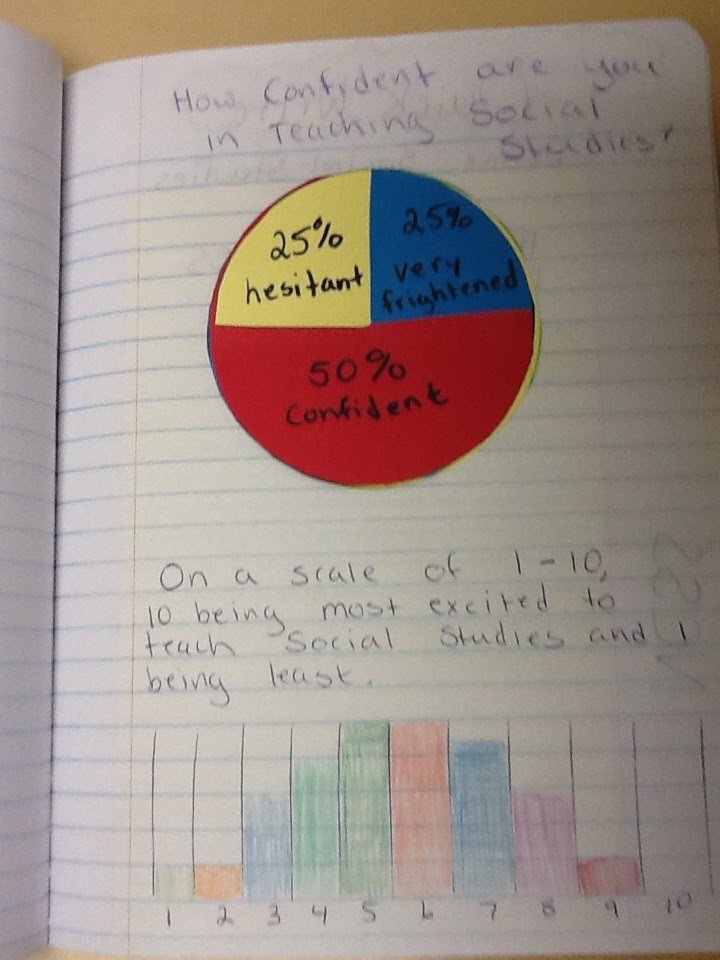 How Confident are you
in Teaching Social
Studies?
25%
hesitant
25%
very
frightened
50%
Confident
On a scale of 1-10,
10 being most excited to
teach Social Studies and 1
being least.
1 2 3 4 5 6 7 8 9 10